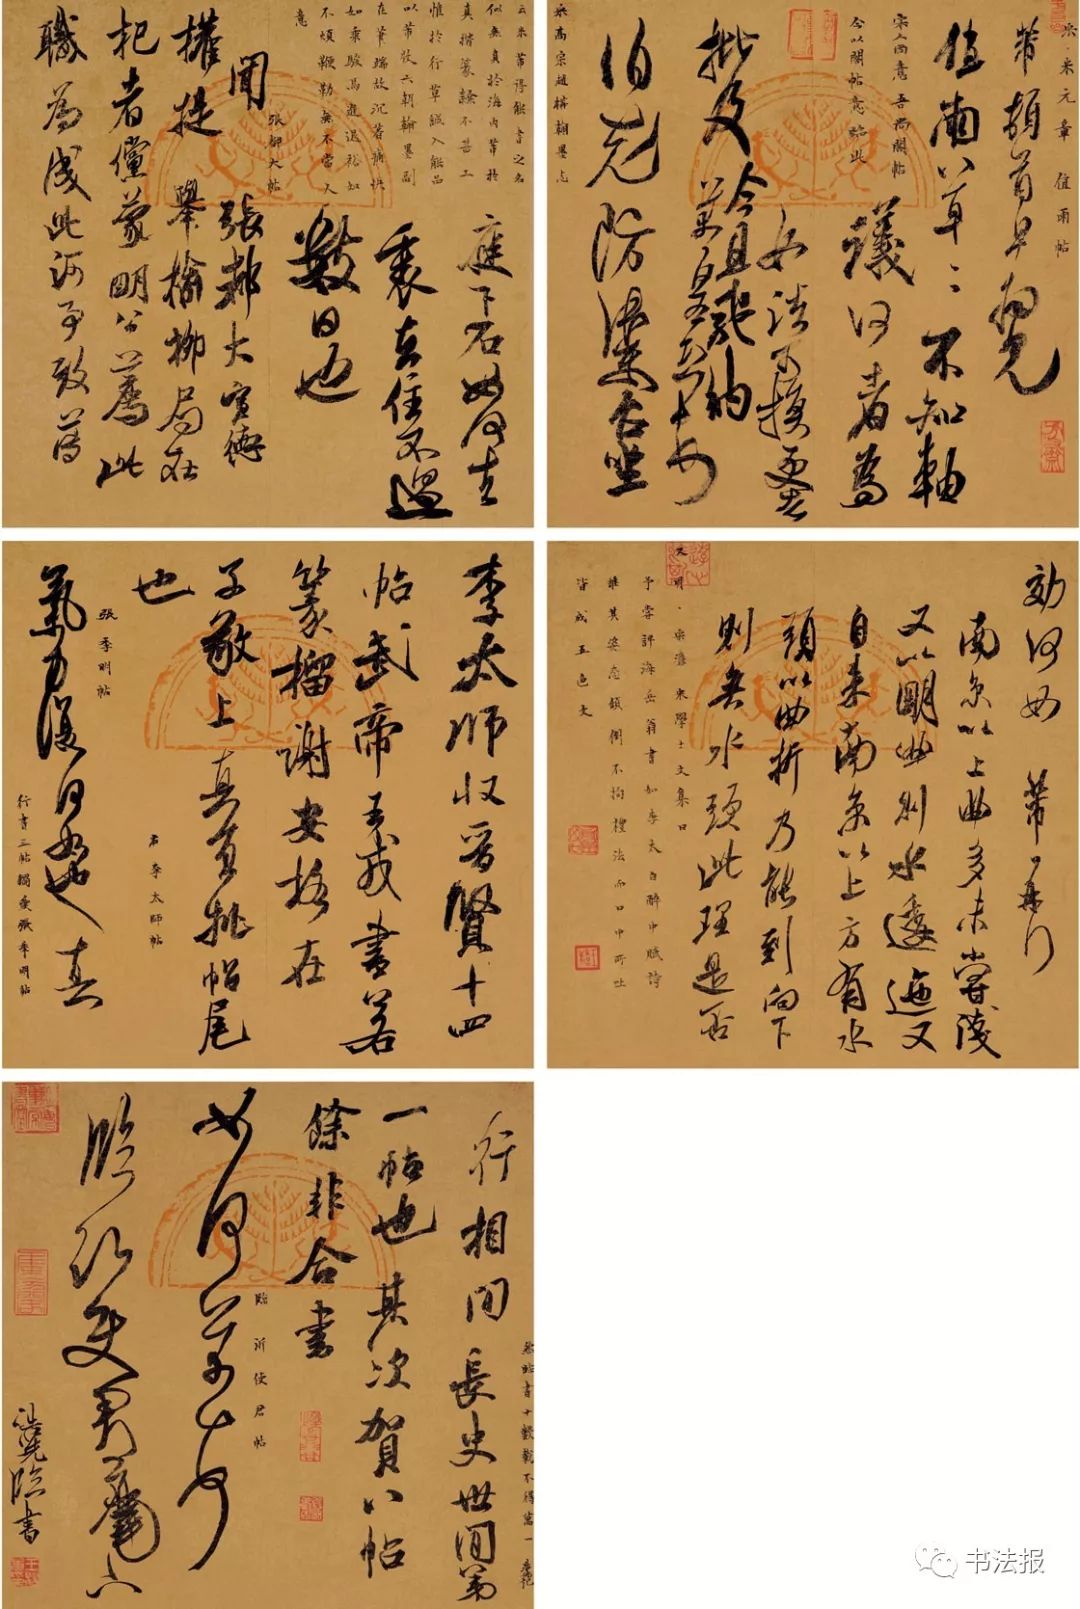 宋·米元章 值雨帖
芾頓首早
值雨草々不知軸
宋人尚意吾尚閣帖
今以閣帖意臨此
議何者為
批及今且馳納
伯充防禦台坐
宋高宗趙構翰墨志
云米芾得能書之名
似無負於海內芾於
真楷篆隸不甚工
惟於行草誠入能品
以芾收六朝翰墨副
在筆端故沉著痛快
如乘駿馬進退裕如
不煩鞭勒無不當人
意
庭下石如何去
裏在住不過
數日也
張都大帖
聞張都大宣德
權提舉榆柳局在
杞者儻蒙明公薦此
職為成此河事致薄
効何如芾再行
南京以上曲多未嘗淺
又以明曲則水逶迤又
自來南京以上方有水
頭以曲折乃能到向下
則無水頭此理是否
又
明·宋濂宋學士文集曰
予嘗評海岳翁書如李太白醉中賦詩
雖其姿态傾倒不拘禮法而口中所吐
皆成五色文
李太師收晉賢十四
帖武帝王戎書若
篆籀謝安格在
子敬上真宜批帖尾
也
右李太師帖
張季明帖
氣力復何如也真
行書三帖獨愛張季明帖
行相間長史世間第
一帖也其次賀八帖
餘非合書
臨沂使君帖
如何芾如何
臨沂使君麾下
臨書
书法报